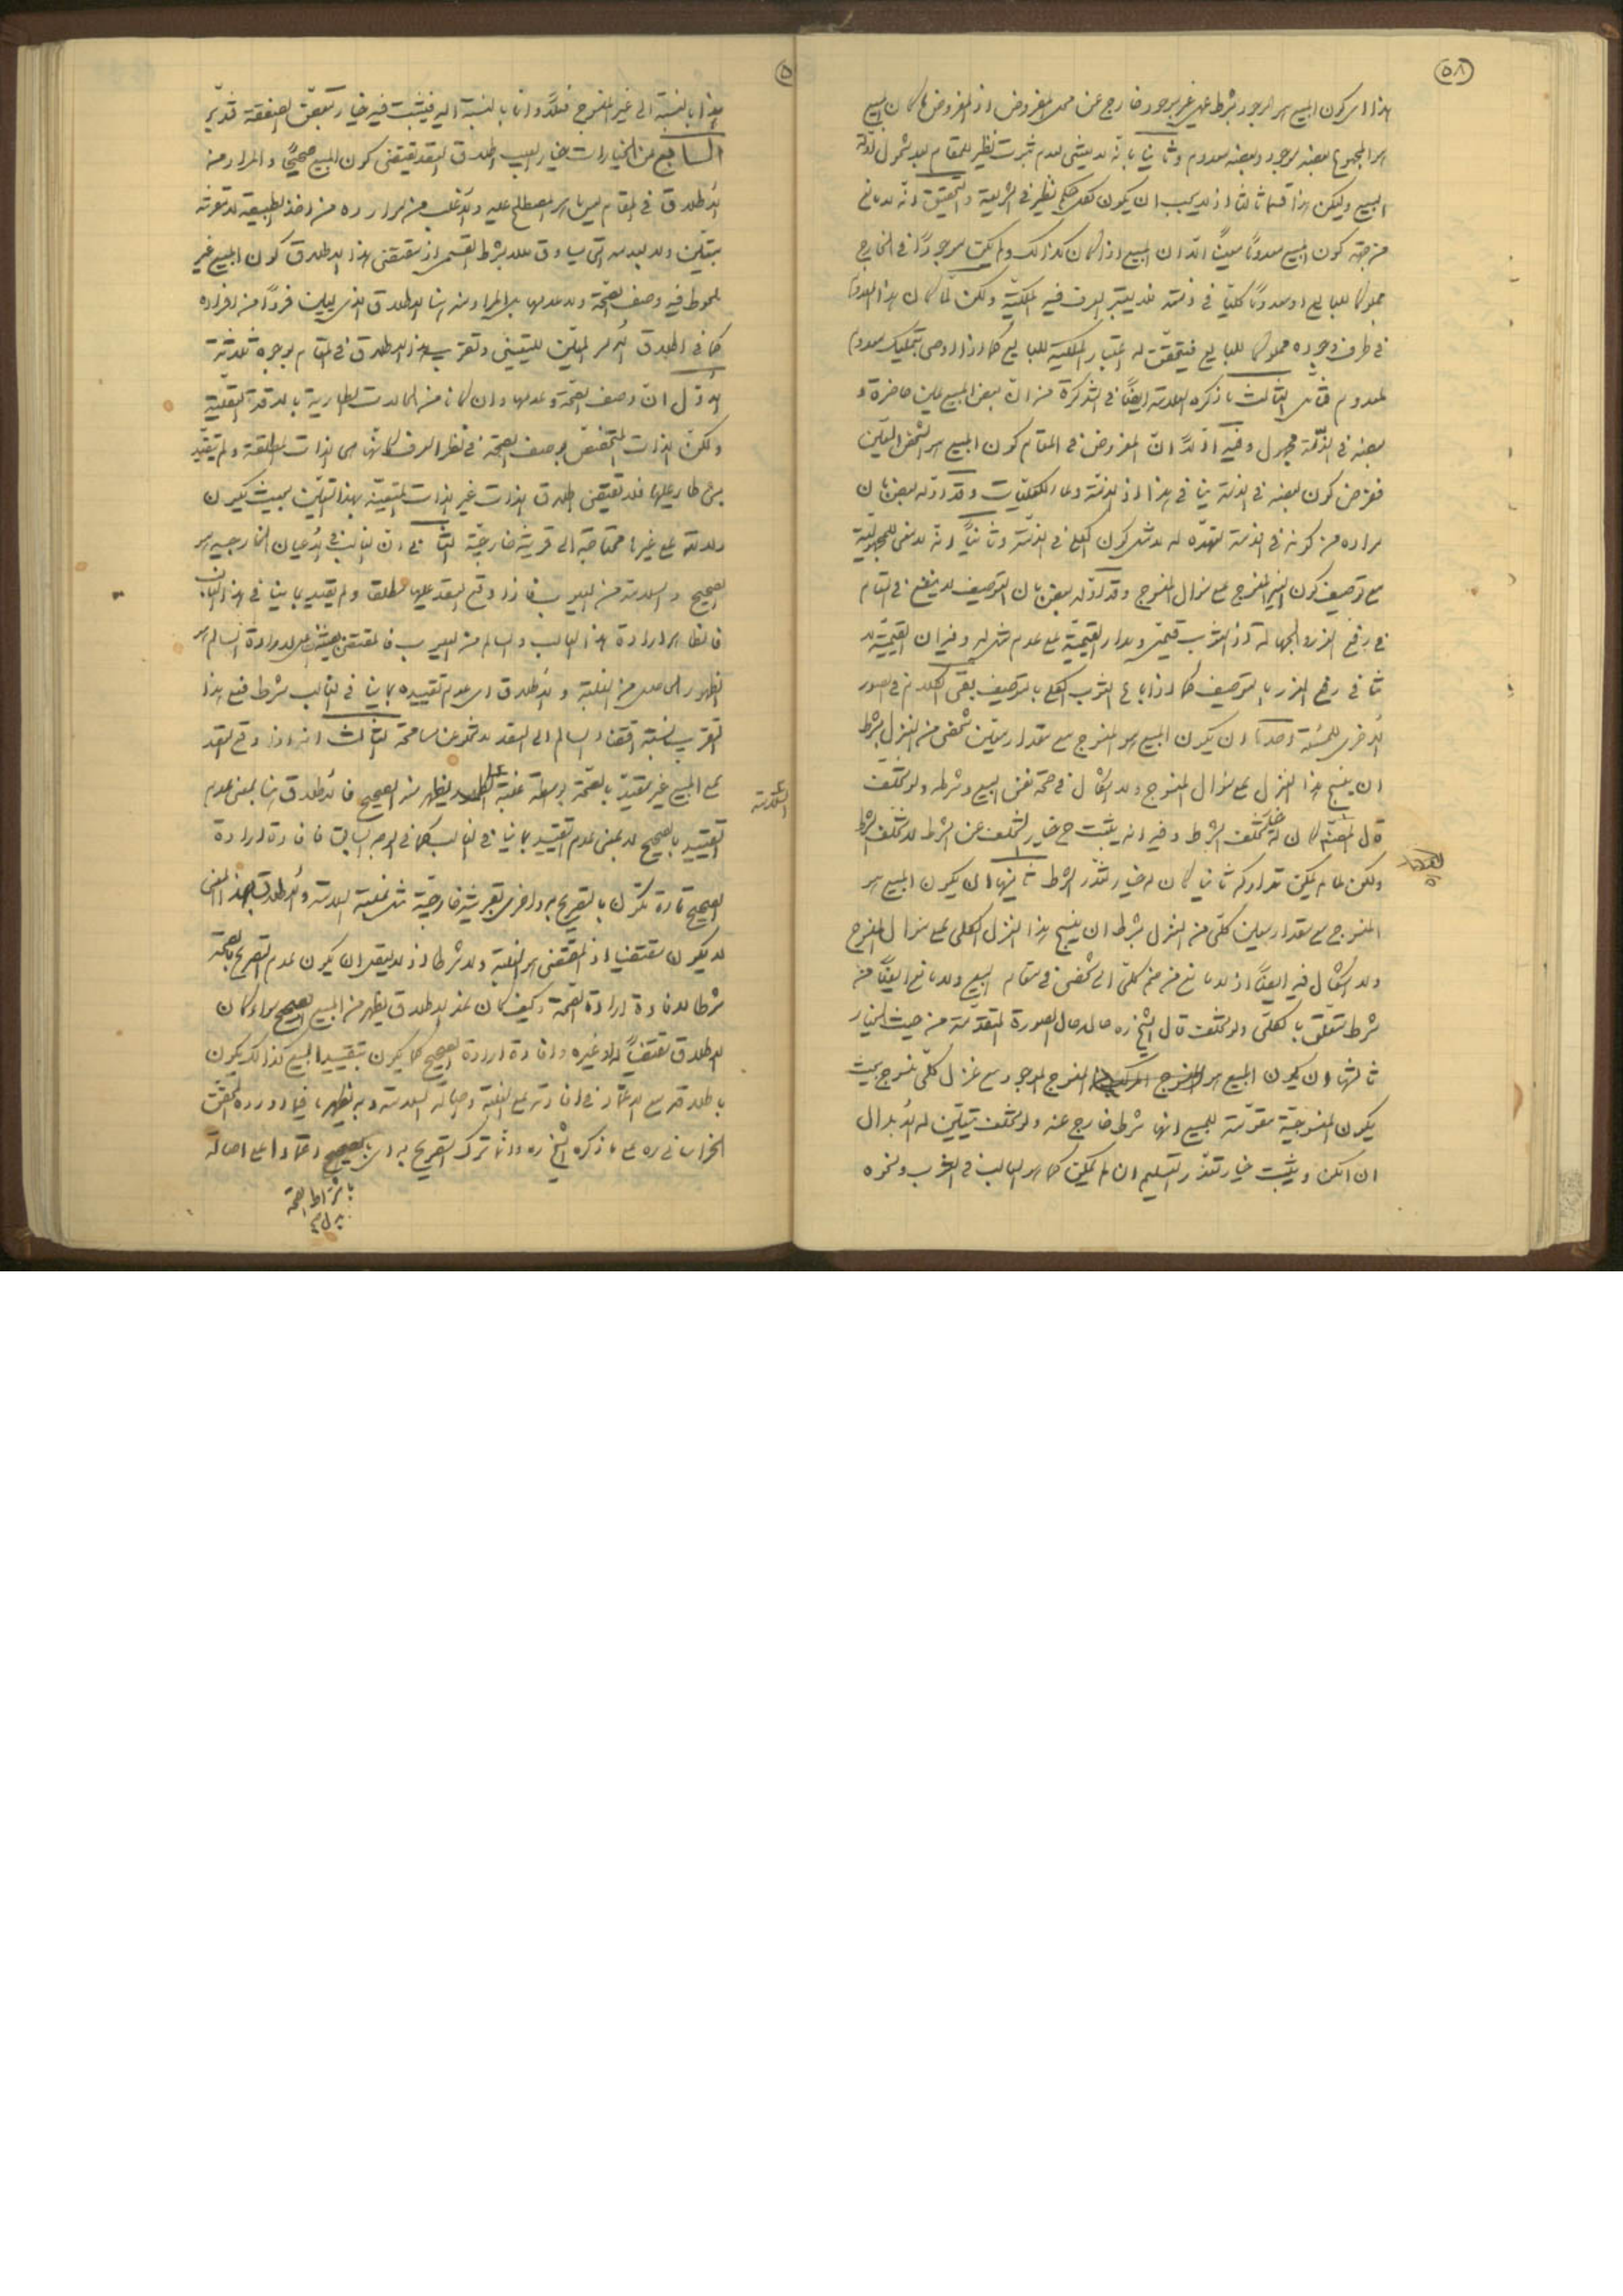 ٥٨
هذا اى كون المبيع هو الموجود بشرط غير موجود خارج عن محل المفروض اذ المفروض ما كان المبيع
هو المجموع بعضه موجود وبعضه معدوم وثانيا بانه لا يقتضى لعدم ثبوت نظير للمقام بعد شمول ادلة
البيع وليكن هذا قسما ثالثا اذ لا يجب ان يكون لكل حكم نظير فى الشريعة والتحقيق انه لا مانع
من جهة كون المبيع معدوما معينا الا ان المبيع اذا كان كذلك ولم يكن موجودا فى الخارج
مملوكا للبايع او معدوما كليا فى ذمته فلا يعتبر العرف فيه الملكية ولكن لما كان هذا المعدوم
فى ظرف وجوده مملوكا للبايع فيتحقق له اعتبار الملكية للبايع كما اذا اوصى بتمليك معدوم
لمعدوم فتأمل الثالث ما ذكره العلامة ايضا فى التذكرة من ان بعض المبيع عين حاضرة و
بعضه فى الذمة مجهول وفيه اولا ان المفروض فى المقام كون المبيع هو الشخص المعين
ففرض كون بعضه فى الذمة ينافى هذا اذ الذمة وعاء الكليات وقد اوله بعض بان
مراده من كونه فى الذمة تعهده له لا مثل كون الكلى فى الذمة وثانيا انه لا معنى للمجهولية
مع توصيف كون الغير المنسوج على منوال المنسوج وقد اوله بعض بان التوصيف لا ينفع فى المقام
فى رفع الغرر والجهالة اذ الثوب قيمى ومدار القيمية على عدم مثل له وفيه ان القيمية لا
تنافى رفع الغرر بالتوصيف كما اذا باع الثوب الكلى بالتوصيف بقى الكلام فى الصور
الاخرى للمسئلة احدها ان يكون المبيع هو المنسوج مع مقدار معين شخصى من الغزل بشرط
ان ينسج هذا الغزل على منوال المنسوج ولا اشكال فى صحة نفس البيع وشرطه ولو تخلف
قال المصنف كان له خيار تخلف الشرط وفيه انه يثبت ح خيار التخلف عن الشرط لا تخلف الشرط
ولكن لما لم يمكن تداركه ثانيا كان له خيار تعذر الشرط ثانيها ان يكون المبيع هو
المنسوج مع مقدار معين كلى من الغزل بشرط ان ينسج هذا الغزل الكلى على منوال المنسوج
ولا اشكال فيه ايضا اذ لا مانع من ضم كلى الى شخصى فى مقام البيع ولا مانع ايضا من
شرط متعلق بالكلى ولو تخلف قال الشيخ ره حاله حال الصورة المتقدمة من حيث الخيار
ثالثها ان يكون المبيع هو المنسوج الموجود مع غزل كلى منسوج بحيث
يكون المنسوجية مقومة للمبيع لا انها شرط خارج عنه ولو تخلف يتعين له الابدال
ان امكن ويثبت خيار تعذر التسليم ان لم يمكن كما هو الغالب فى الثوب ونحوه
هذا بالنسبة الى غير المنسوج فعلا واما بالنسبة اليه فيثبت فيه خيار تبعض الصفقة فتدبر
السابع من الخيارات خيار العيب اطلاق العقد يقتضى كون المبيع صحيحا والمراد من
الاطلاق فى المقام ليس ما هو المصطلح عليه والاغلب من موارده من اخذ الطبيعة لا مقرونة
بتعين ولا بعدمه التى يساوق للا بشرط القسمى اذ مقتضى هذا الاطلاق كون المبيع غير
ملحوظ فيه وصف الصحة ولا عدمها بل المراد منه هنا الاطلاق الذى يعين فردا من افراده
كما فى اطلاق الامر المعين للتعيينى وتقريب هذا الاطلاق فى المقام بوجوه ثلاثة
الاول ان وصف الصحة وعدمها وان كانا من الحالات الطارية بالدقة العقلية
ولكن الذات المتخصص بوصف الصحة فى نظر العرف كانها هى الذات مطلقة ولم يتقيد
بشئ طار عليها فلا يقتضى اطلاق الذات غير الذات المتعينة بهذا التعين بحيث يكون
دلالته على غيرها محتاجة الى قرينة خارجية الثانى ان الغالب فى الاعيان الخارجية هو
الصحيح والسلامة من العيوب فاذا وقع العقد عليها مطلقا ولم يقيد بما ينافى هذا الغالب
فالظاهر ارادة هذا الغالب والسالم من العيوب فالمقتضى حينئذ لارادة السالم هو
الظهور الحاصل من الغلبة والاطلاق اى عدم تقييده بما ينافى الغالب شرط فعلى هذا
التقريب نسبة اقتضاء السالم الى العقد لا تخلو عن مسامحة الثالث انه اذا وقع العقد
على المبيع غير مقيد بالصحة بواسطة غلبة السلامة يظهر منه الصحيح فالاطلاق هنا بمعنى عدم
التقييد بالصحيح لا بمعنى عدم التقييد بما ينافى الغالب كما فى الوجه السابق فافادة ارادة
الصحيح تارة تكون بالتصريح به واخرى بقرينة خارجية مثل غلبة السلامة والاطلاق بهذا المعنى
لا يكون مقتضيا اذ المقتضى هو الغلبة ولا شرطا اذ لا يعقل ان يكون عدم التصريح بالصحة
شرطا لافادة ارادة الصحة وكيف كان عند الاطلاق يظهر من المبيع الصحيح سواء كان
الاطلاق مقتضيا له او غيره وافادة ارادة الصحيح كما يكون بتقييد المبيع كذلك يكون
باطلاقه مع الاعتماد فى افادته على الغلبة واصالة السلامة وبه يظهر ما فيما اورده المحقق
الخراسانى ره على ما ذكره الشيخ ره وانما ترك التصريح به اى بالصحيح اعتمادا على اصالة
باشتراط الصحة